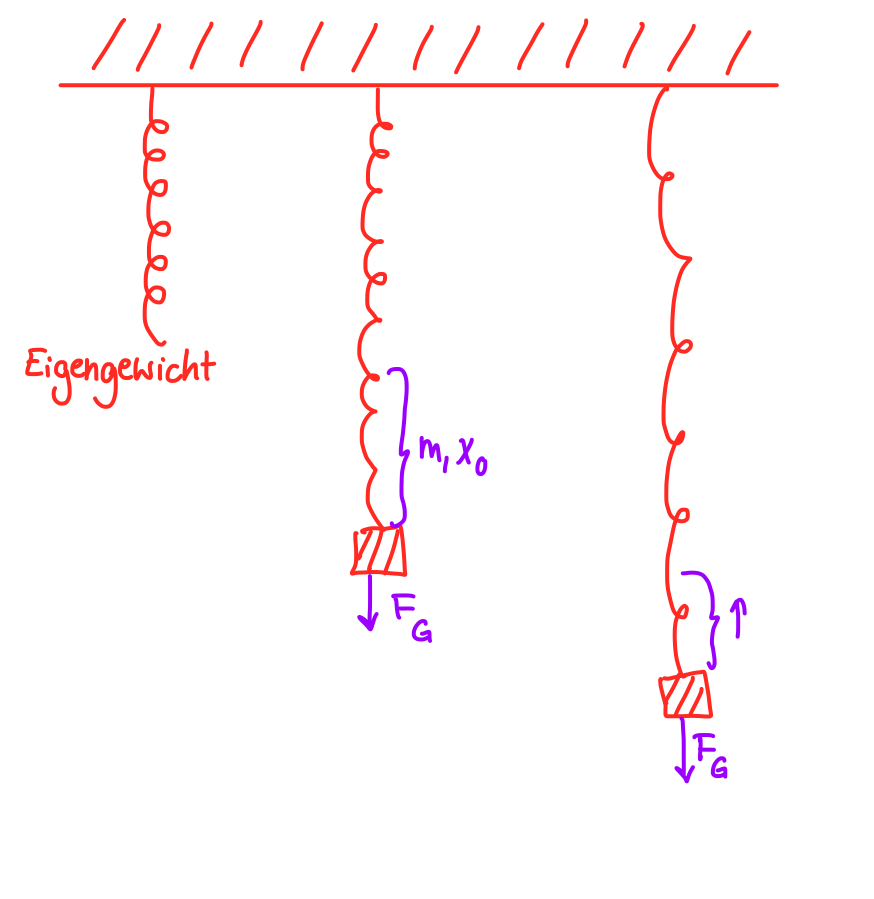 Eigengewicht
m, x₀
F_G
↑
F_G